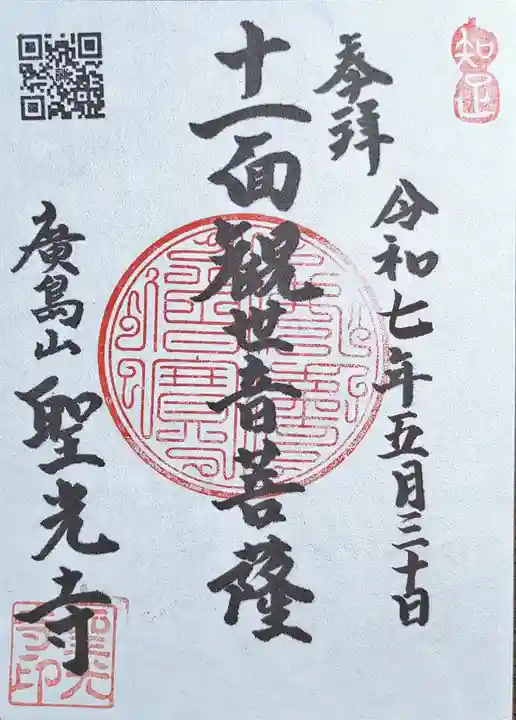 知足
奉拝
令和七年五月三十日
十一面観世音菩薩
廣島山
聖光寺